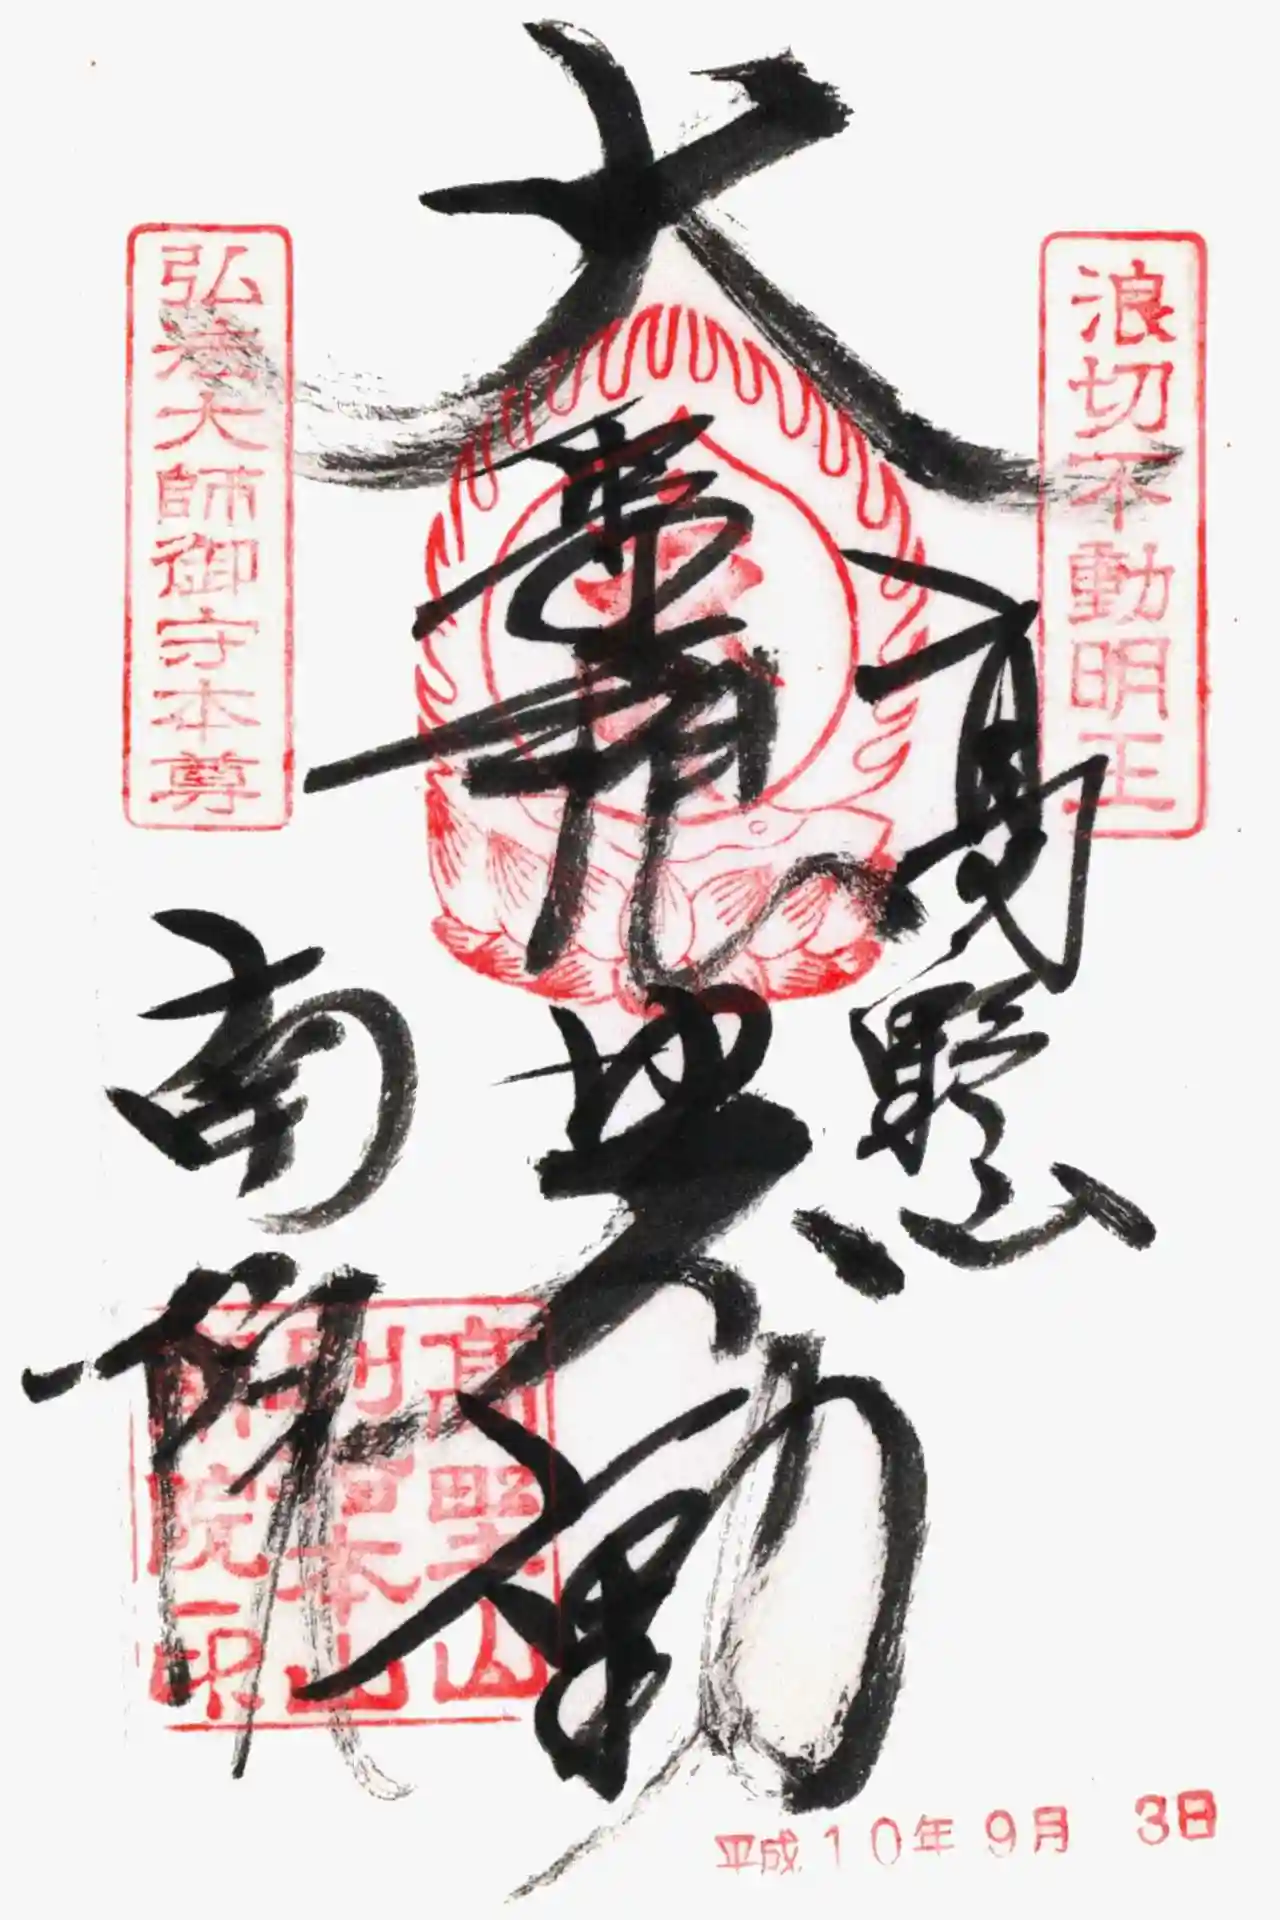 浪切不動明王
高野山
大聖
不動
南院
弘法大師御守本尊
高野山
別格本山
南院印
平成10年9月3日